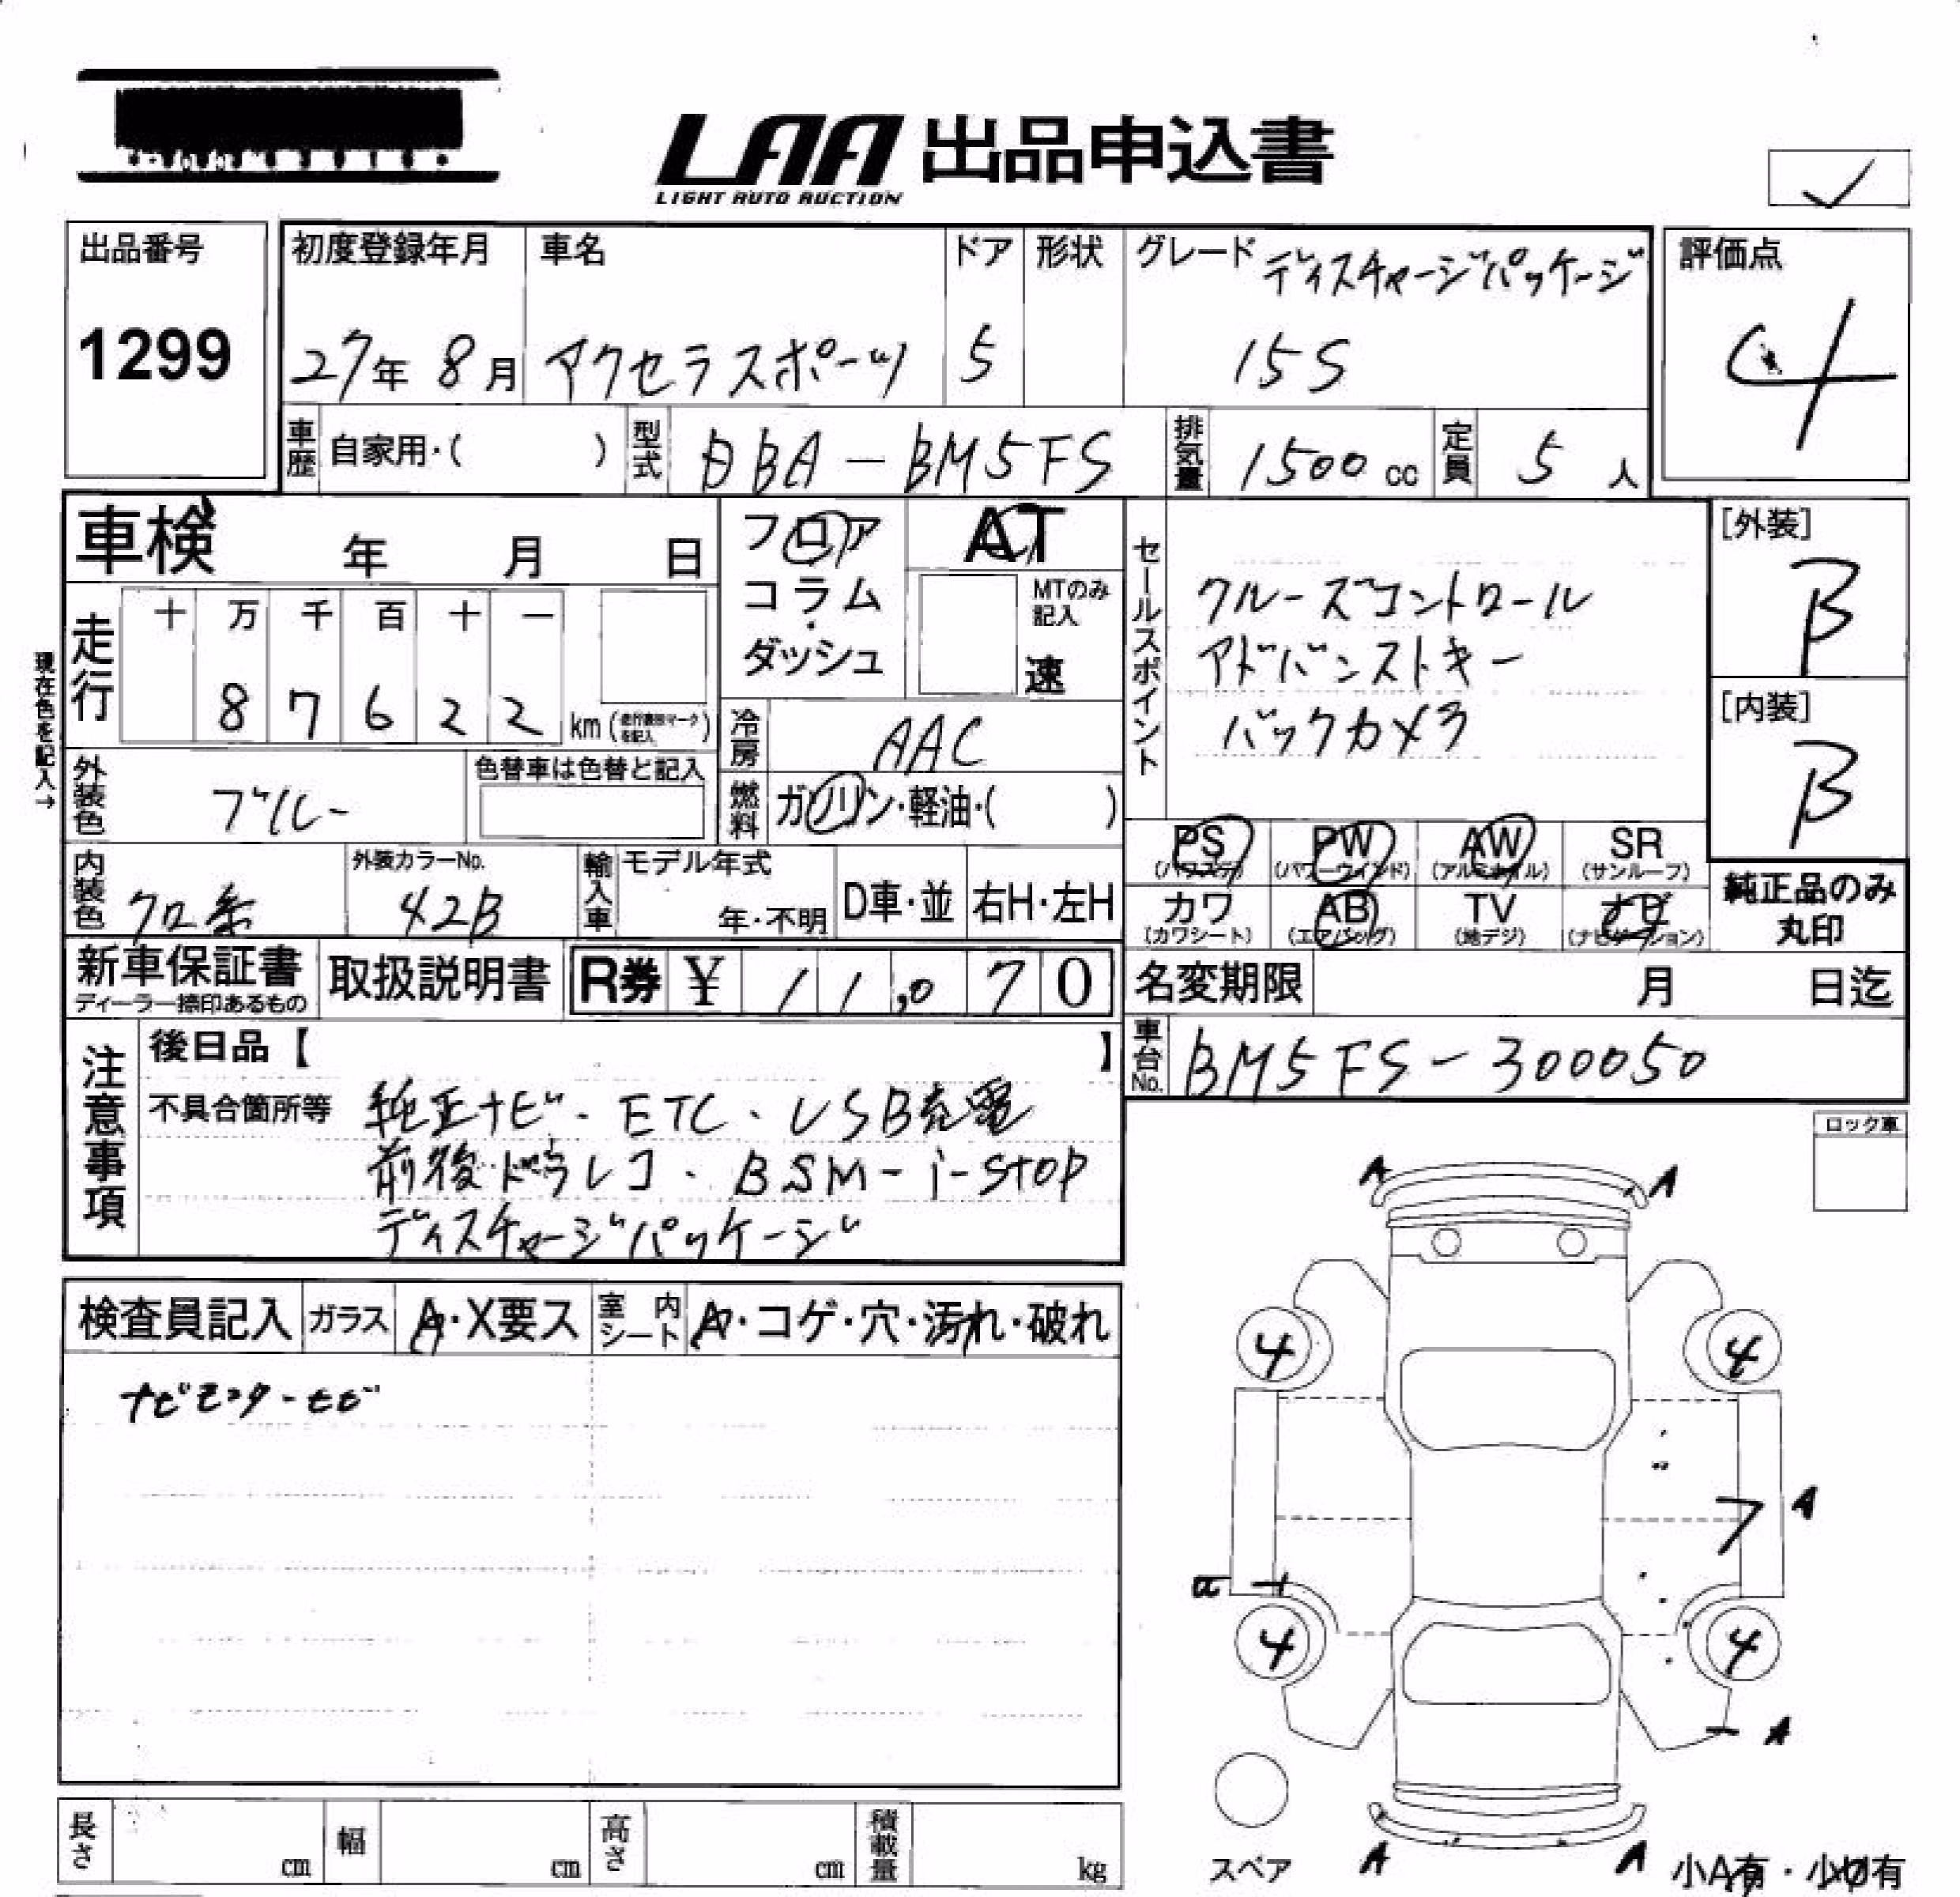 LAA 出品申込書
LIGHT AUTO AUCTION
出品番号
1299
初度登録年月
27年 8月
車名
アクセラスポーツ
ドア
5
形状
グレード ディスチャージパッケージ
15S
評価点
4
車歴 自家用・( )
型式 DBA-BM5FS
排気量 1500cc
定員 5人
車検 年 月 日
フロア
コラム
・
ダッシュ
AT
MTのみ記入
速
セールスポイント
クルーズコントロール
アドバンストキー
バックカメラ
[外装]
B
[内装]
B
現在色を記入→
走行
十 万 千 百 十 一
8 7 6 2 2 km
冷房 AAC
燃料 ガソリン・軽油・( )
外装色 ブルー
色替車は色替と記入
内装色 クロ系
外装カラーNo.
42B
輸入車 モデル年式
年・不明
D車・並
右H・左H
PS (パワステ)
PW (パワーウインド)
AW (アルミホイル)
SR (サンルーフ)
カワ (カワシート)
AB (エアバッグ)
TV (地デジ)
ナビ (ナビゲーション)
純正品のみ
丸印
新車保証書
ディーラー捺印あるもの
取扱説明書
R券 ¥ 11,070
名変期限 月 日迄
車台No. BM5FS-300050
注意事項
後日品【 】
不具合箇所等 純正ナビ・ETC・USB充電
前後ドラレコ・BSM-i-stop
ディスチャージパッケージ
ロック車
検査員記入 ガラス A・X要ス 室内シート A・コゲ・穴・汚れ・破れ
A A
4 4
A
4 4
A
A A
スペア
小A有・小U有
長さ cm
幅 cm
高さ cm
積載量 kg